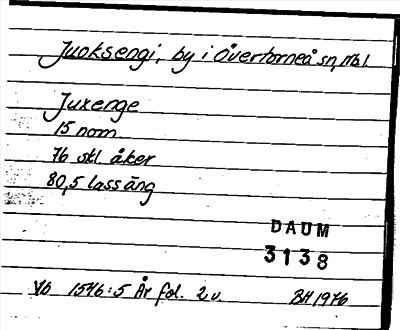 Juoksengi, by i Övertorneå sn, Nbl.
Juxenge
15 nom
76 skl. åker
80,5 lass äng
DAUM
3138
Vb 1546:5 År fol. 2 v. BH 1976